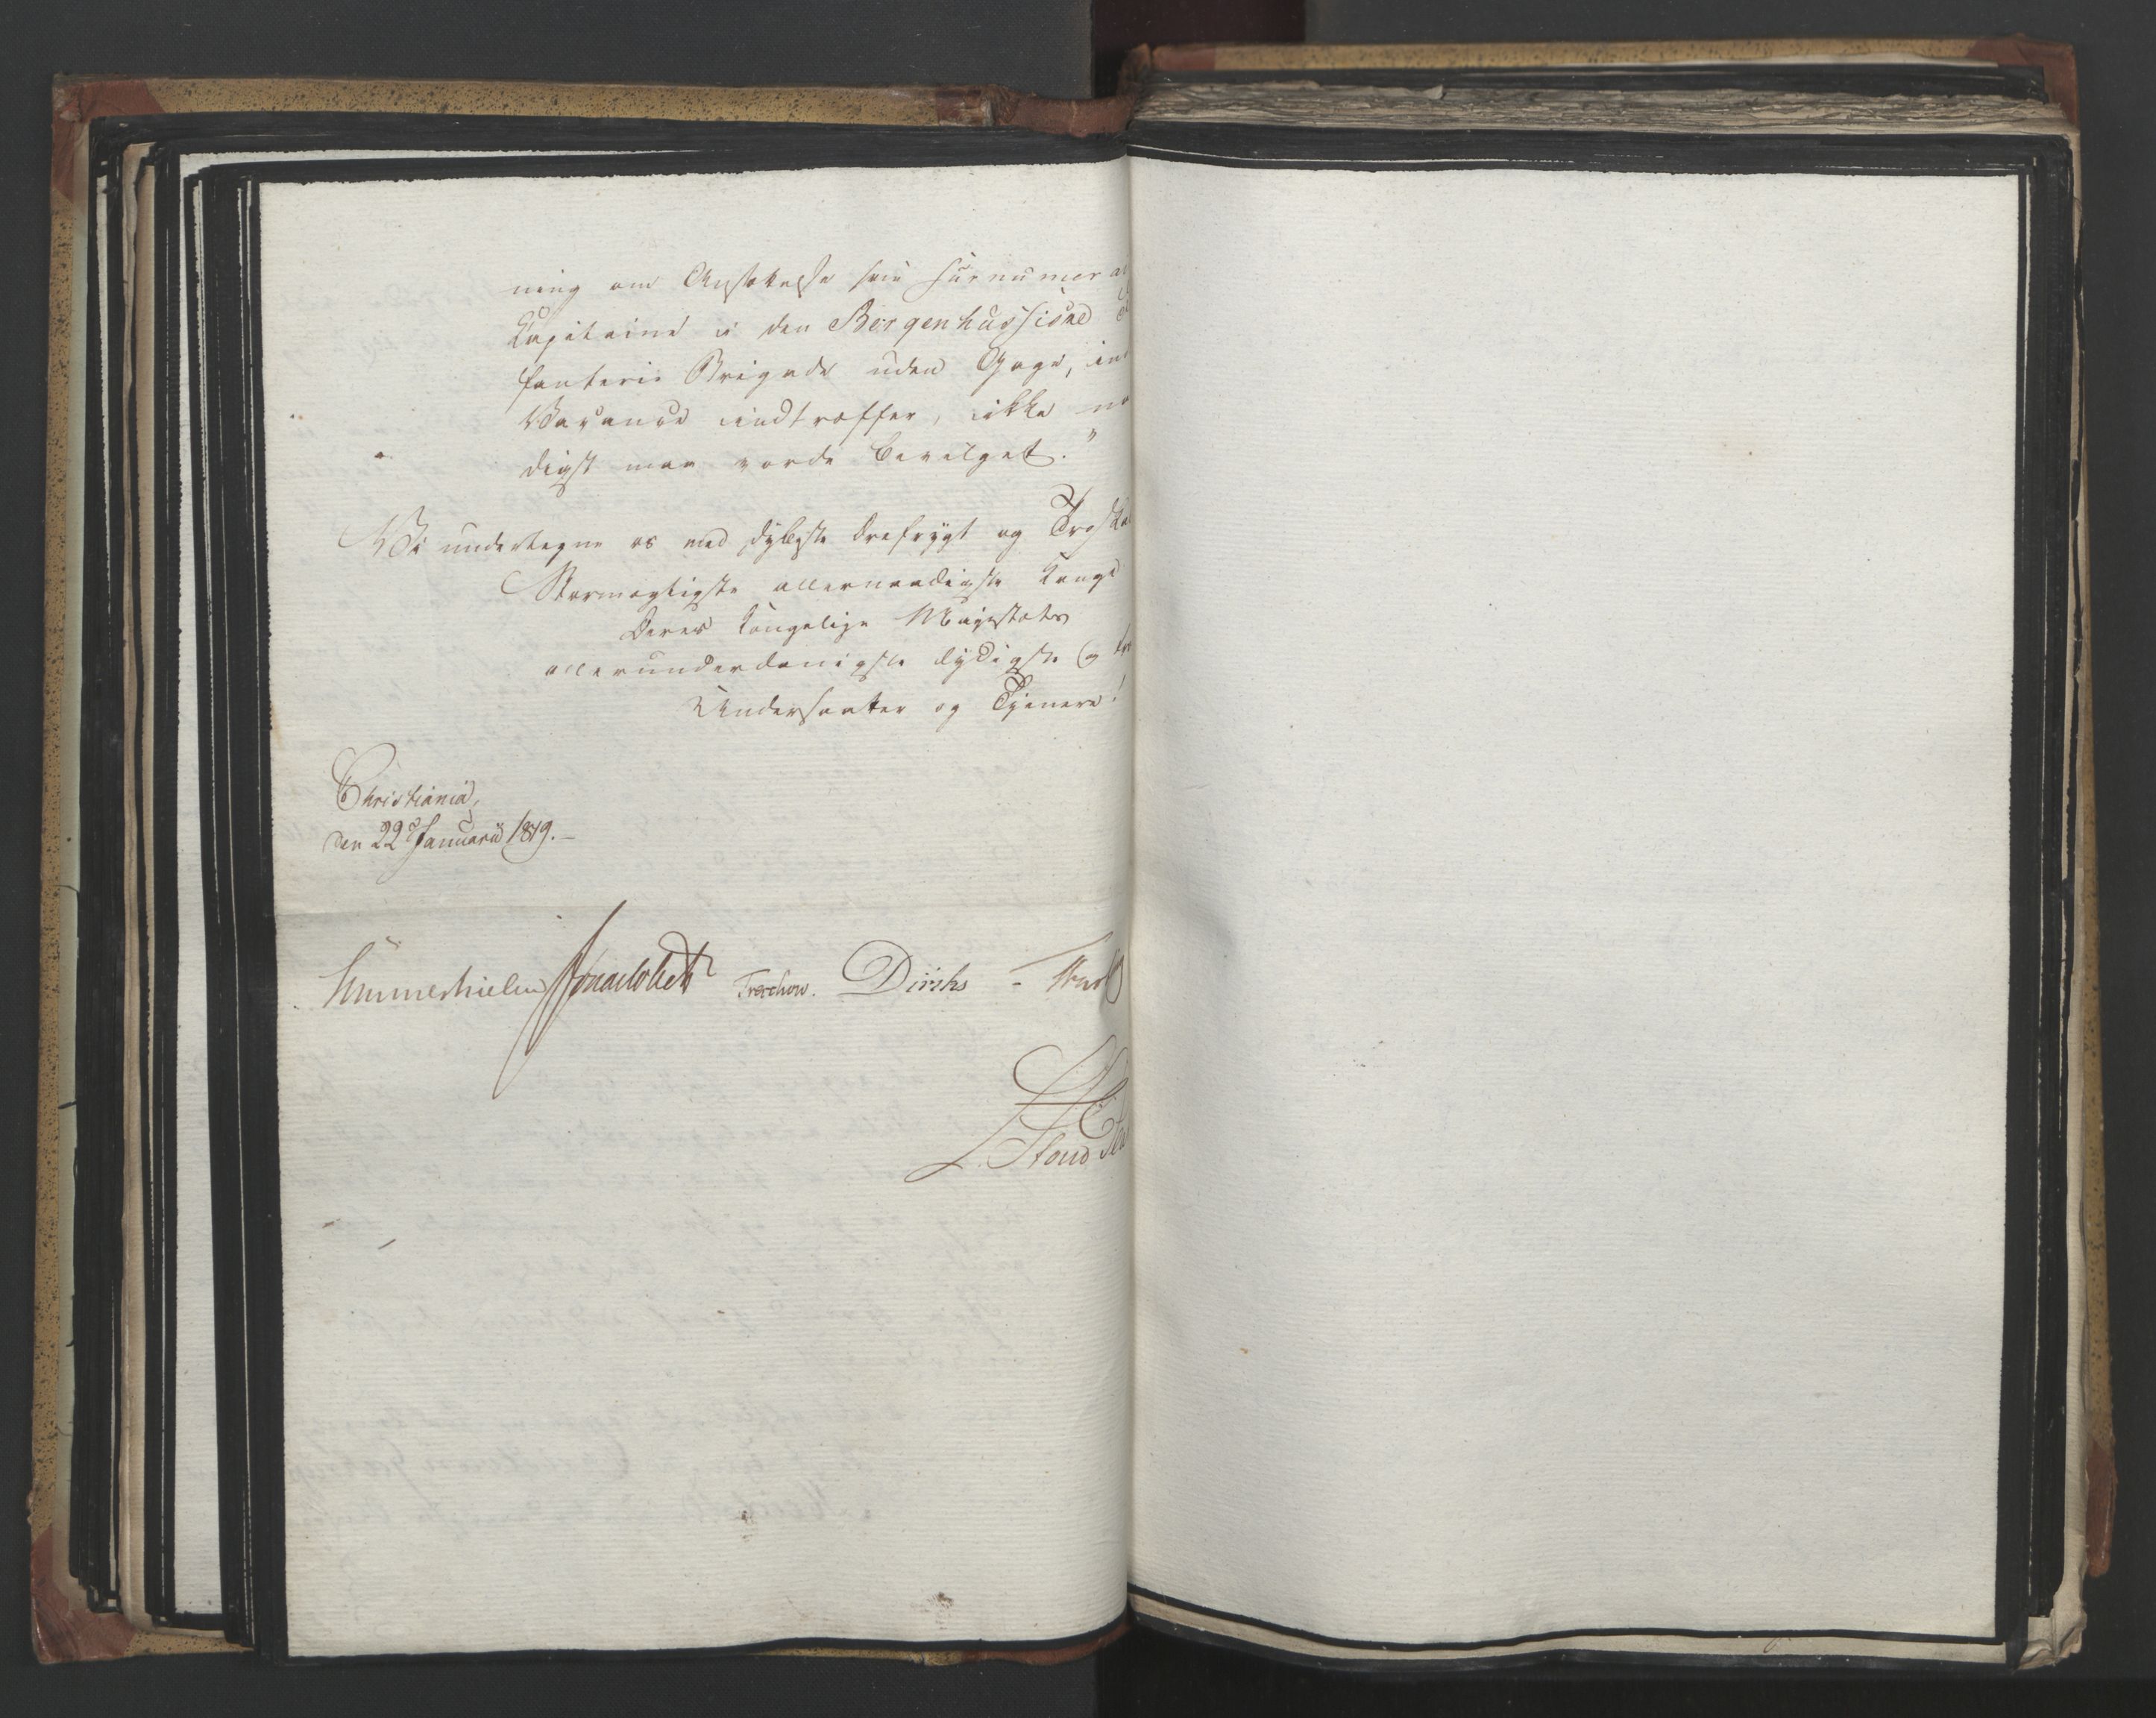 ning om Ansættelse som surnumerai
Kapitaine i den Bergenhussiske
fanterie Brigade uden Gage, in
Vacance indtræffer, ikke na
digst maa vorde bevilget."
Vi undertegne os med dybeste Ærefrygt og Troskab
Stormægtigste allernaadigste Konge
Deres Kongelige Majestæts
allerunderdanigste lydigste og tro
Undersaatter og Tjenere!
Christiania,
den 22d Januarii 1819.-
Hummerhielm Treschow. Diriks -